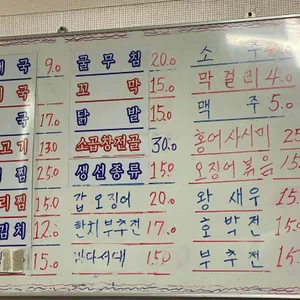 국 9.0
국
국 17.0
고기 13.0
찜 25.0
찜 15.0
김치 12.0
15.0
골무침 20.0
꼬막 15.0
닭발 15.0
소곱창전골 30.0
생선종류 15.0
갑오징어 20.0
한치부추전 17.0
서대 15.0
소주
막걸리 4.0
맥주 5.0
홍어사시미 25
오징어볶음 15.
왕새우 15.
호박전 15.
부추전 15.